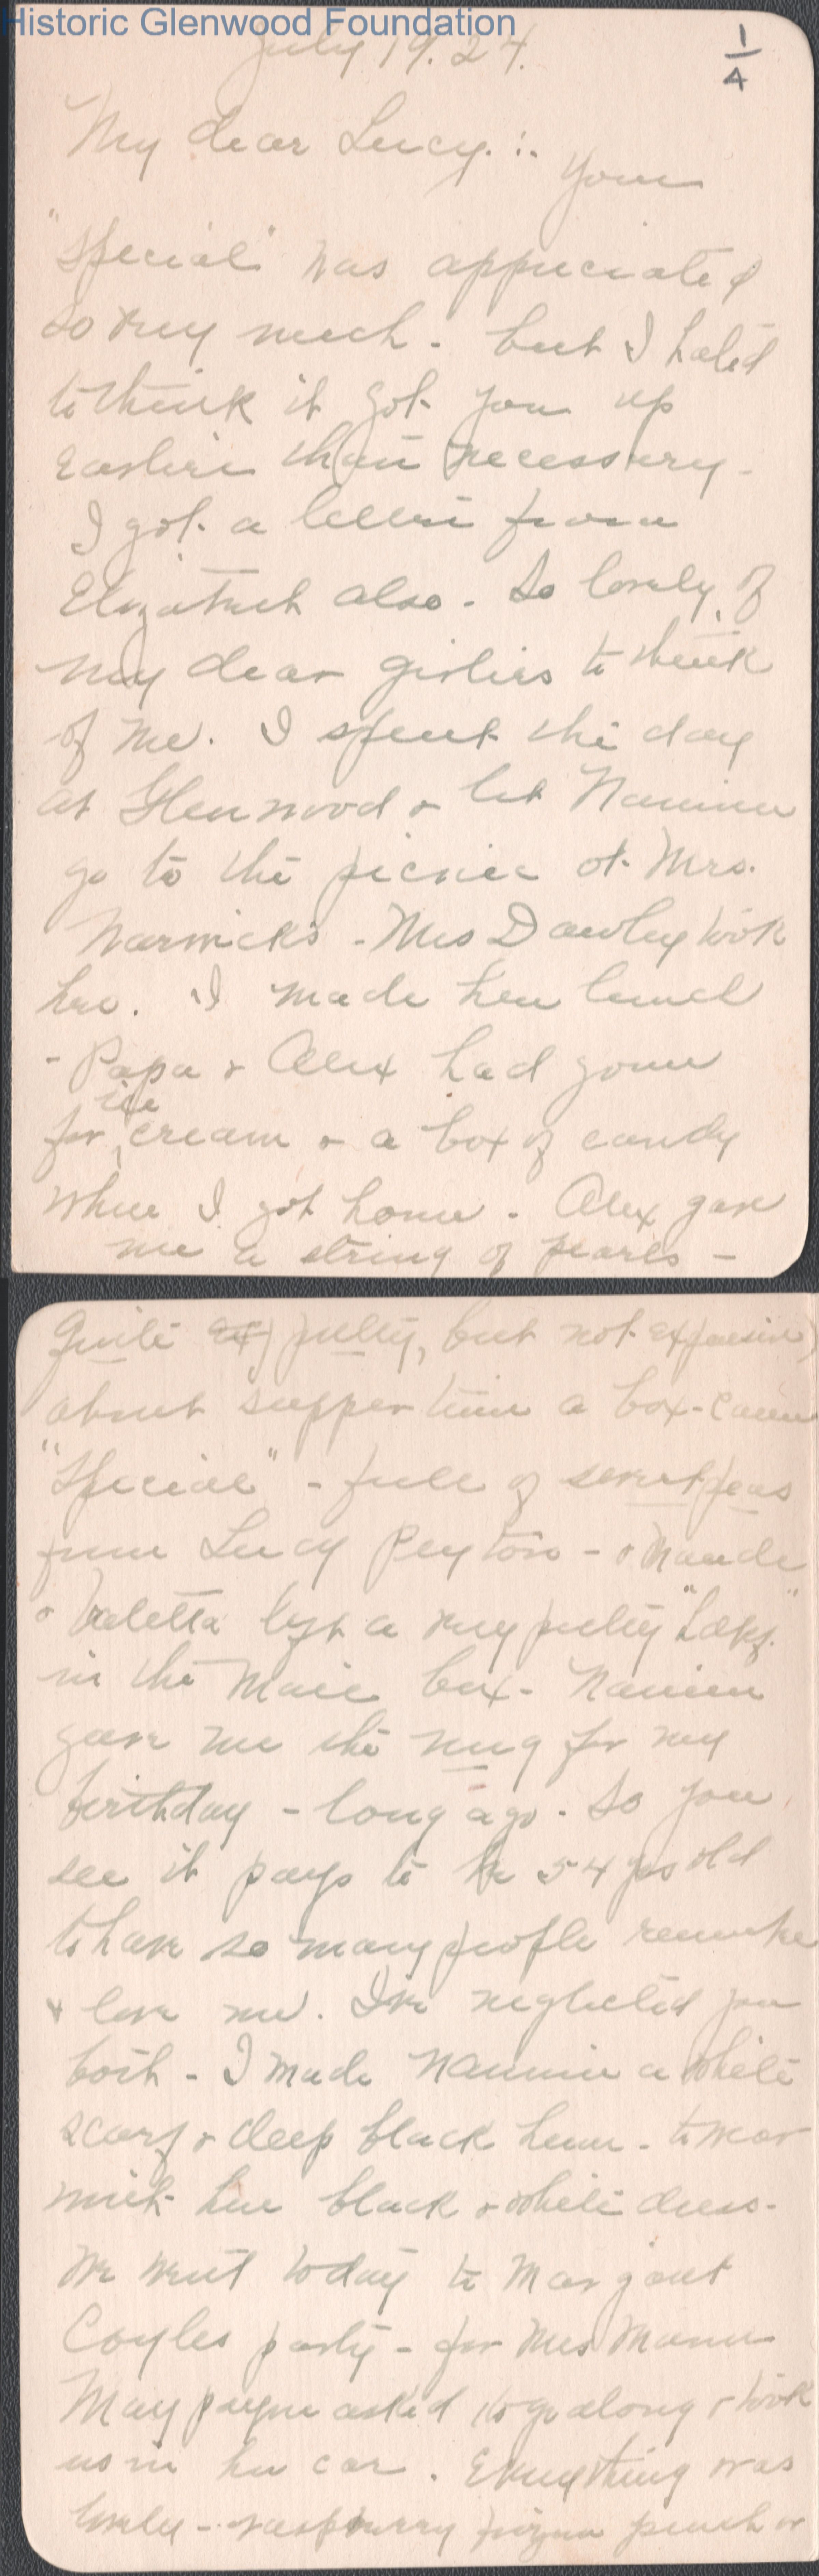 Historic Glenwood Foundation
July 19. 24.
1/4
My dear Lucy. :.
Your
"Special" was appreciated
so very much - but I hated
to think it got you up
earlier than necessary -
I got a letter from
Elizabeth also. So lovely of
my dear girlies to think
of me. I spent the day
at Glenwood & let Nannie
go to the picnic at Mrs.
Warwick's - Mrs Dawley took
her. I made her lunch
- Papa & Alex had gone
ice
for cream & a box of candy
when I got home. Alex gave
me a string of pearls -
Quite pretty, but not expensive)
about supper time a box - came
"Special" - full of sweet peas
from Lucy Peyton - & Maude
& Valetta left a very pretty "hdkf."
in the mail box - Nannie
gave me the rug for my
birthday - long ago. So you
see it pays to be 54 yrs old
to have so many people
& love me. I've neglected you
both - I made Nannie a white
scarf & deep black hem - to wear
with her black & white dress -
We went today to Margaret
Coyles party - for Mrs Mann
May Payne asked to go along & took
us in her car. Everything was
lovely - raspberry frozen punch or